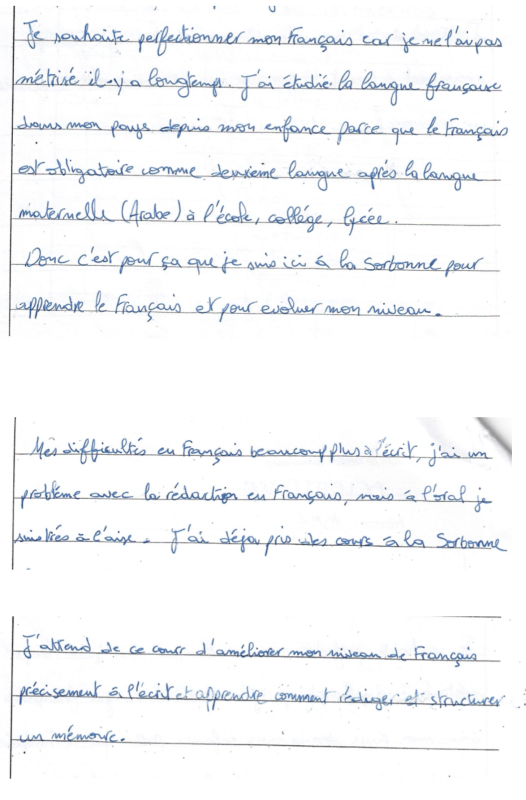 Je souhaite perfectionner mon Français car je ne l'ai pas
métrisé il-y a longtemps. J'ai étudié la langue française
dans mon pays depuis mon enfance parce que le Français
est obligatoire comme deuxième langue après la langue
maternelle (Arabe) à l'école, collége, lycée.
Donc c'est pour ça que je suis ici à la Sorbonne pour
apprendre le Français et pour evoluer mon niveau.
Mes difficultés en Français beaucoup plus à l'écrit, j'ai un
problème avec la rédaction en Français, mais à l'oral je
suis très à l'aise. J'ai déjà pris des cours à la Sorbonne
J'attend de ce cour d'améliorer mon niveau de Français
précisement à l'écrit et apprendre comment rédiger et structurer
un mémoire.